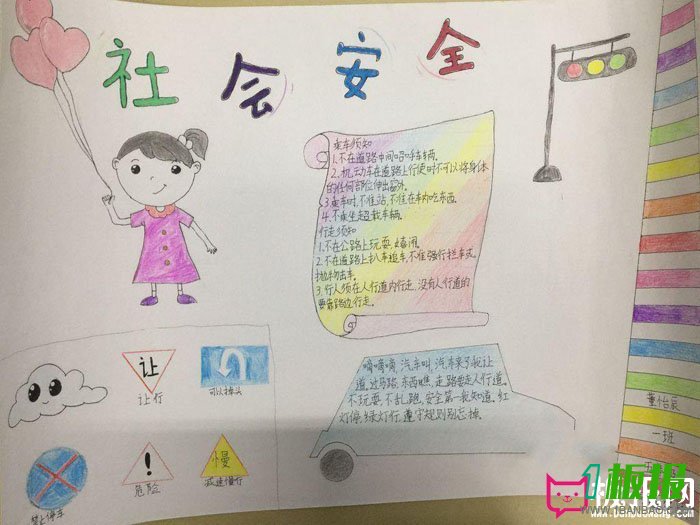 社会安全
乘车须知
1.不在道路中间招呼车辆。
2.机动车在道路上行使时不可以将身体
的任何部位伸出窗外。
3.乘车时,不准站,不准在车内吃东西。
4.不乘坐超载车辆。
行走须知
1.不在公路上玩耍、嬉闹。
2.不在道路上扒车追车,不准强行拦车或
抛物击车。
3.行人须在人行道内行走,没有人行道的
要靠路边行走。
让
让行
可以掉头
禁止停车
!
危险
慢
减速慢行
嘀嘀嘀,汽车叫,汽车来了我让
道。过马路,东西瞧,走路要走人行道。
不玩耍,不乱跑,安全第一我知道。红
灯停,绿灯行,遵守规则别忘掉。
董怡辰
一班
板报